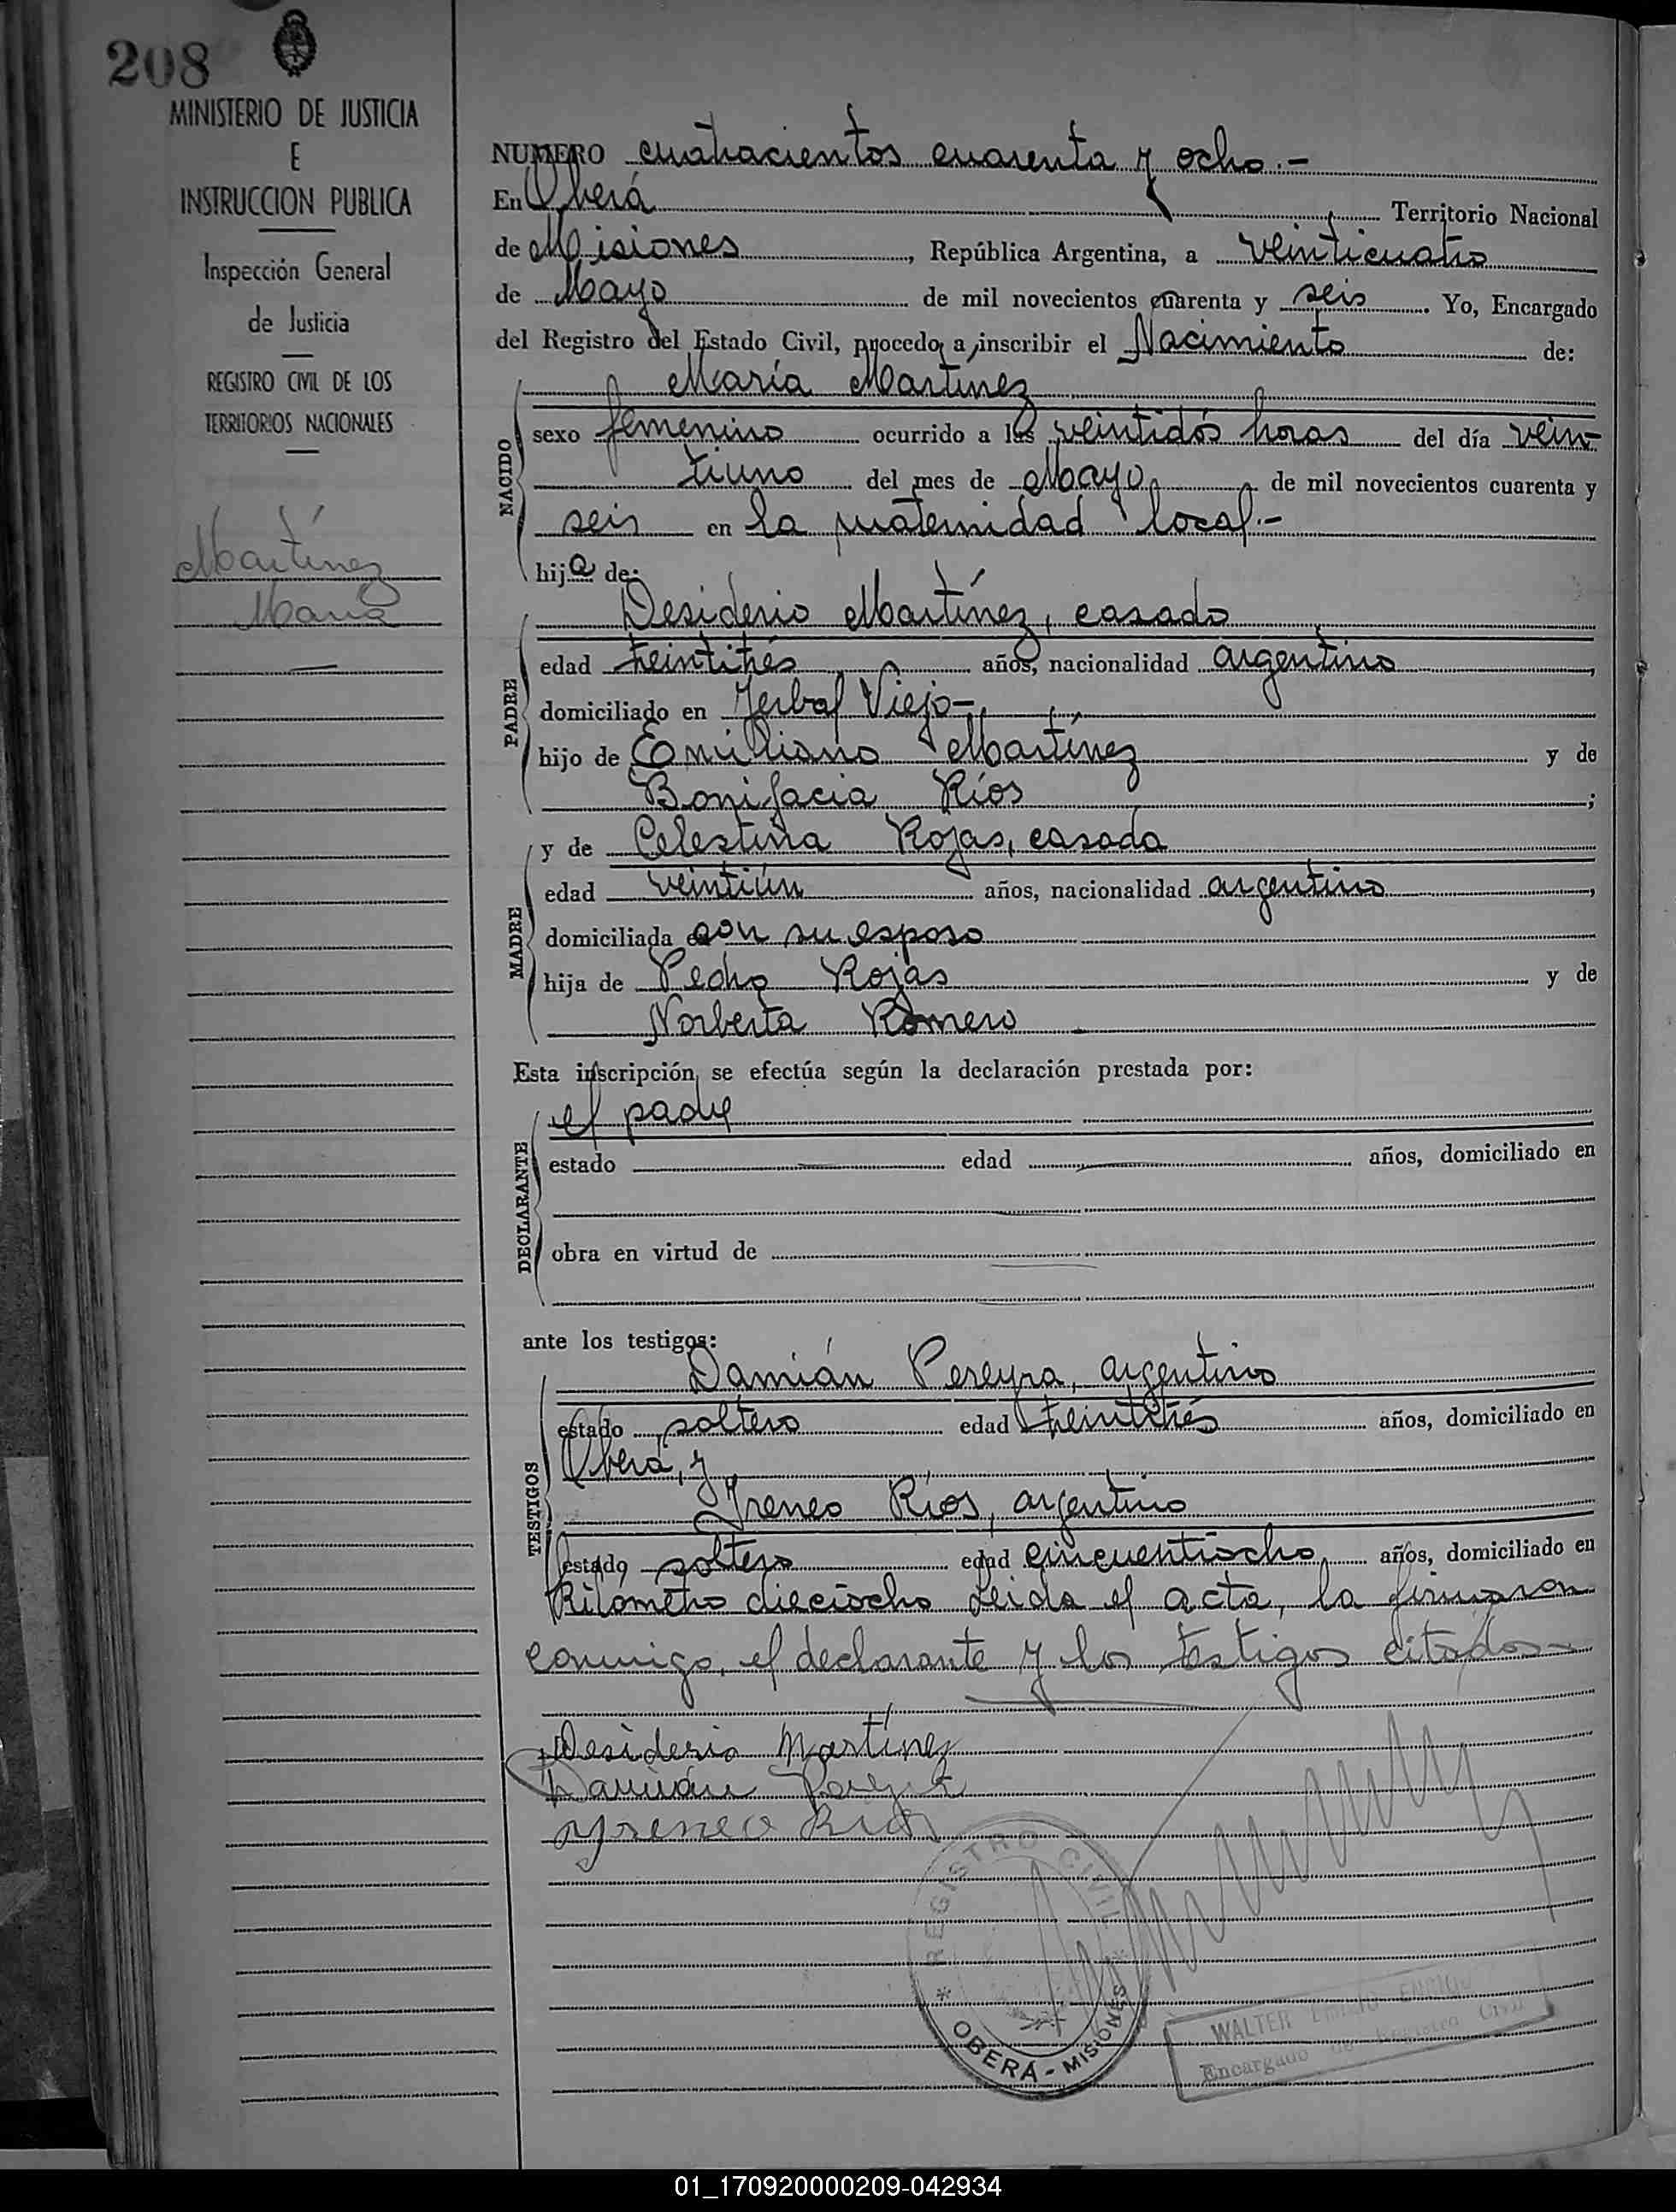 208
MINISTERIO DE JUSTICIA
E
INSTRUCCION PUBLICA
Inspección General
de Justicia
REGISTRO CIVIL DE LOS
TERRITORIOS NACIONALES
Martínez
María
NUMERO cuatrocientos cuarenta y ocho.-
En Oberá Territorio Nacional
de Misiones, República Argentina, a veinticuatro
de Mayo de mil novecientos cuarenta y seis. Yo, Encargado
del Registro del Estado Civil, procedo a inscribir el Nacimiento de:
María Martínez
NACIDO
sexo femenino ocurrido a las veintidós horas del día vein
tiuno del mes de Mayo de mil novecientos cuarenta y
seis en la maternidad local.-
hija de:
PADRE
Desiderio Martínez, casado
edad treintitrés años, nacionalidad argentino,
domiciliado en Yerbal Viejo-
hijo de Emiliano Martínez y de
Bonifacia Ríos;
MADRE
y de Celestina Rojas, casada
edad veintiún años, nacionalidad argentino,
domiciliada con su esposo
hija de Pedro Rojas y de
Norberta Romero
Esta inscripción se efectúa según la declaración prestada por:
DECLARANTE
el padre
estado edad años, domiciliado en
obra en virtud de
ante los testigos:
TESTIGOS
Damián Pereyra, argentino
estado soltero edad treintitrés años, domiciliado en
Oberá, y
Yreneo Ríos, argentino
estado soltero edad cincuentiocho años, domiciliado en
Kilómetro dieciocho Leida el acta, la firmaron
conmigo, el declarante y los testigos citados-
Desiderio Martínez
Damián Pereyra
Yreneo Rios
REGISTRO CIVIL
* OBERÁ - MISIONES *
WALTER
Encargado de Registro Civil
01_170920000209-042934